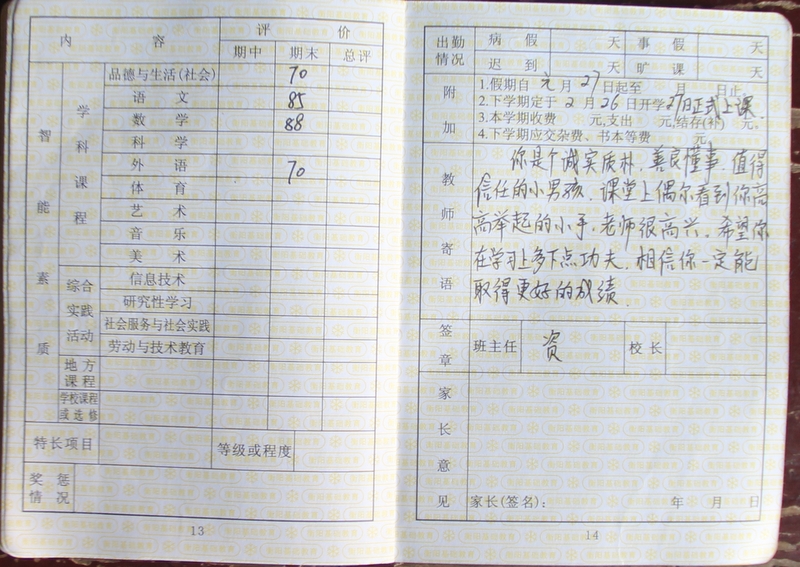 内 容 评 价
期中 期末 总评
智能素质
学科课程
品德与生活(社会) 70
语 文 85
数 学 88
科 学
外 语 70
体 育
艺 术
音 乐
美 术
综合实践活动
信息技术
研究性学习
社会服务与社会实践
劳动与技术教育
地方课程
学校课程或选修
特长项目 等级或程度
奖惩情况
13
出勤情况 病 假 天 事 假 天
迟 到 天 旷 课 天
附加
1.假期自元月27日起至 月 日止。
2.下学期定于2月26日开学27日正式上课.
3.本学期收费 元,支出 元,结存(补) 元,
4.下学期应交杂费、书本等费 元。
教师寄语
你是个诚实质朴、善良懂事、值得
信任的小男孩。课堂上偶尔看到你高
高举起的小手,老师很高兴。希望你
在学习上多下点功夫,相信你一定能
取得更好的成绩.
签章 班主任 资 校 长
家长意见
家长(签名): 年 月 日
14